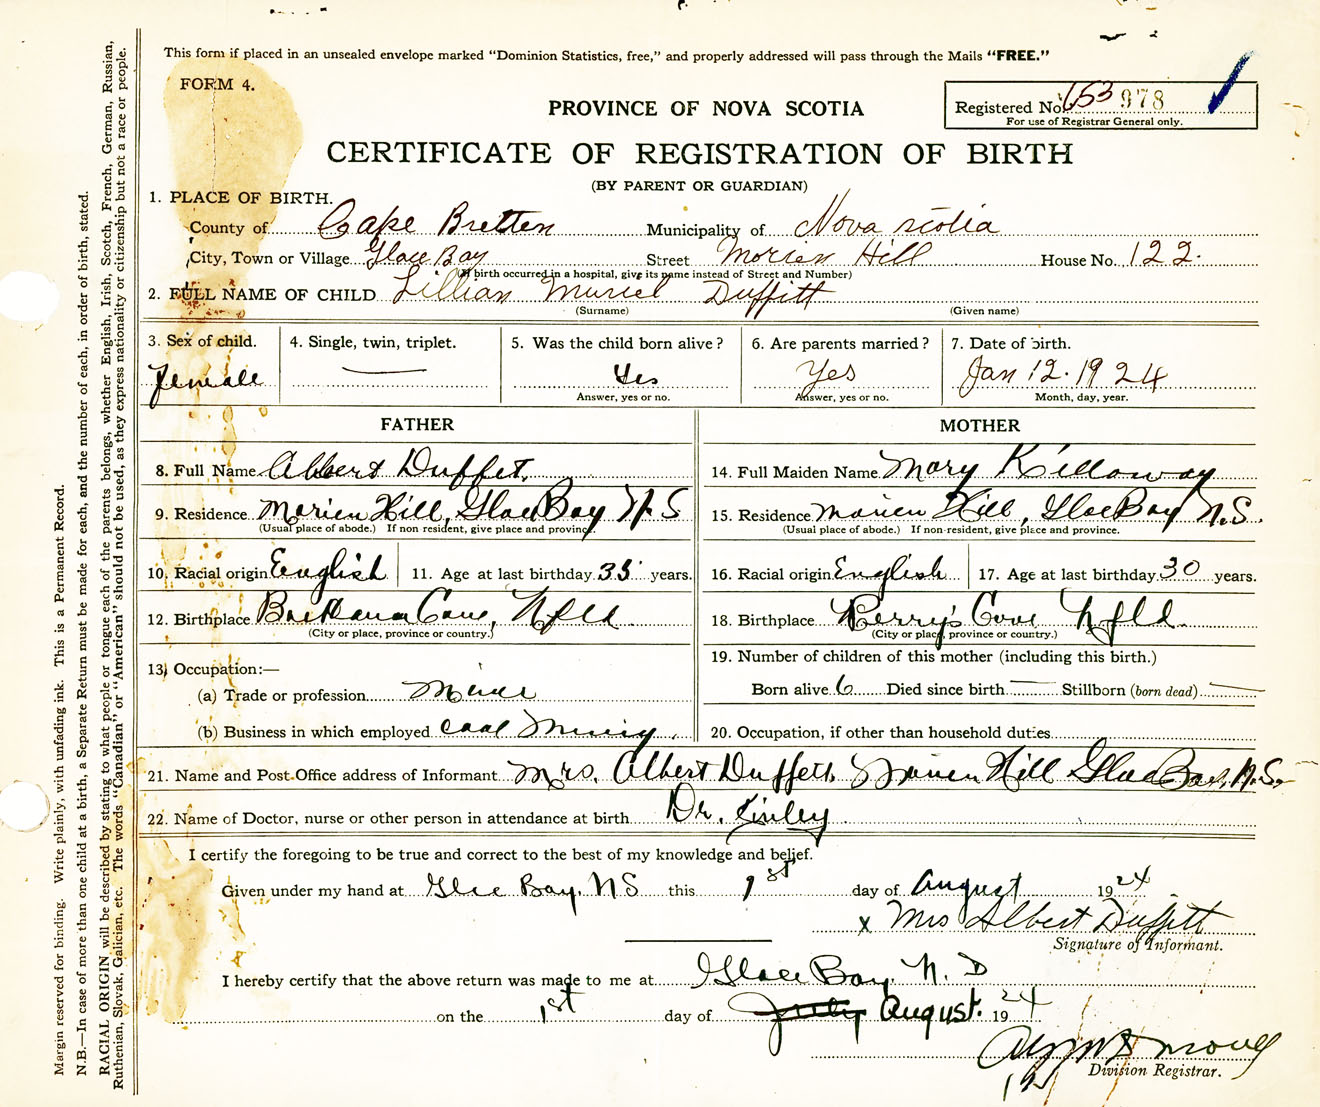 This form if placed in an unsealed envelope marked "Dominion Statistics, free," and properly addressed will pass through the Mails "FREE."
FORM 4.
PROVINCE OF NOVA SCOTIA
Registered No. 653978
For use of Registrar General only.
CERTIFICATE OF REGISTRATION OF BIRTH
(BY PARENT OR GUARDIAN)
1. PLACE OF BIRTH.
County of Cape Bretten Municipality of Nova scotia
City, Town or Village Glace Bay Street Morien Hill House No. 122.
(If birth occurred in a hospital, give its name instead of Street and Number)
2. FULL NAME OF CHILD Lillian Muriel Duffitt
(Surname) (Given name)
3. Sex of child. 4. Single, twin, triplet. 5. Was the child born alive? 6. Are parents married? 7. Date of birth.
Female — Yes Yes Jan 12. 1924
Answer, yes or no. Answer, yes or no. Month, day, year.
FATHER MOTHER
8. Full Name Albert Duffet. 14. Full Maiden Name Mary Killoway
9. Residence Morien Hill, Glace Bay N.S 15. Residence Morien Hill, Glace Bay N.S.
(Usual place of abode.) If non resident, give place and province. (Usual place of abode.) If non-resident, give place and province.
10. Racial origin English 11. Age at last birthday 35 years. 16. Racial origin English 17. Age at last birthday 30 years.
12. Birthplace Cove, Nfld. 18. Birthplace Perry's Cove Nfld.
(City or place, province or country.) (City or place, province or country.)
13. Occupation:— 19. Number of children of this mother (including this birth.)
(a) Trade or profession Miner Born alive 6 Died since birth — Stillborn (born dead) —
(b) Business in which employed Coal Mining. 20. Occupation, if other than household duties
21. Name and Post-Office address of Informant Mrs. Albert Duffett, Morien Hill Glace Bay, N.S.
22. Name of Doctor, nurse or other person in attendance at birth Dr. Kinley
I certify the foregoing to be true and correct to the best of my knowledge and belief.
Given under my hand at Glce Bay, NS this 1st day of August 1924
x Mrs Albert Duffitt
Signature of Informant.
I hereby certify that the above return was made to me at Glace Bay N. S
on the 1st day of July August. 1924
Division Registrar.
Margin reserved for binding. Write plainly, with unfading ink. This is a Permanent Record.
N.B.—In case of more than one child at a birth, a Separate Return must be made for each, and the number of each, in order of birth, stated.
RACIAL ORIGIN will be described by stating to what people or tongue each of the parents belongs, whether English, Irish, Scotch, French, German, Russian,
Ruthenian, Slovak, Galician, etc. The words "Canadian" or "American" should not be used, as they express nationality or citizenship but not a race or people.